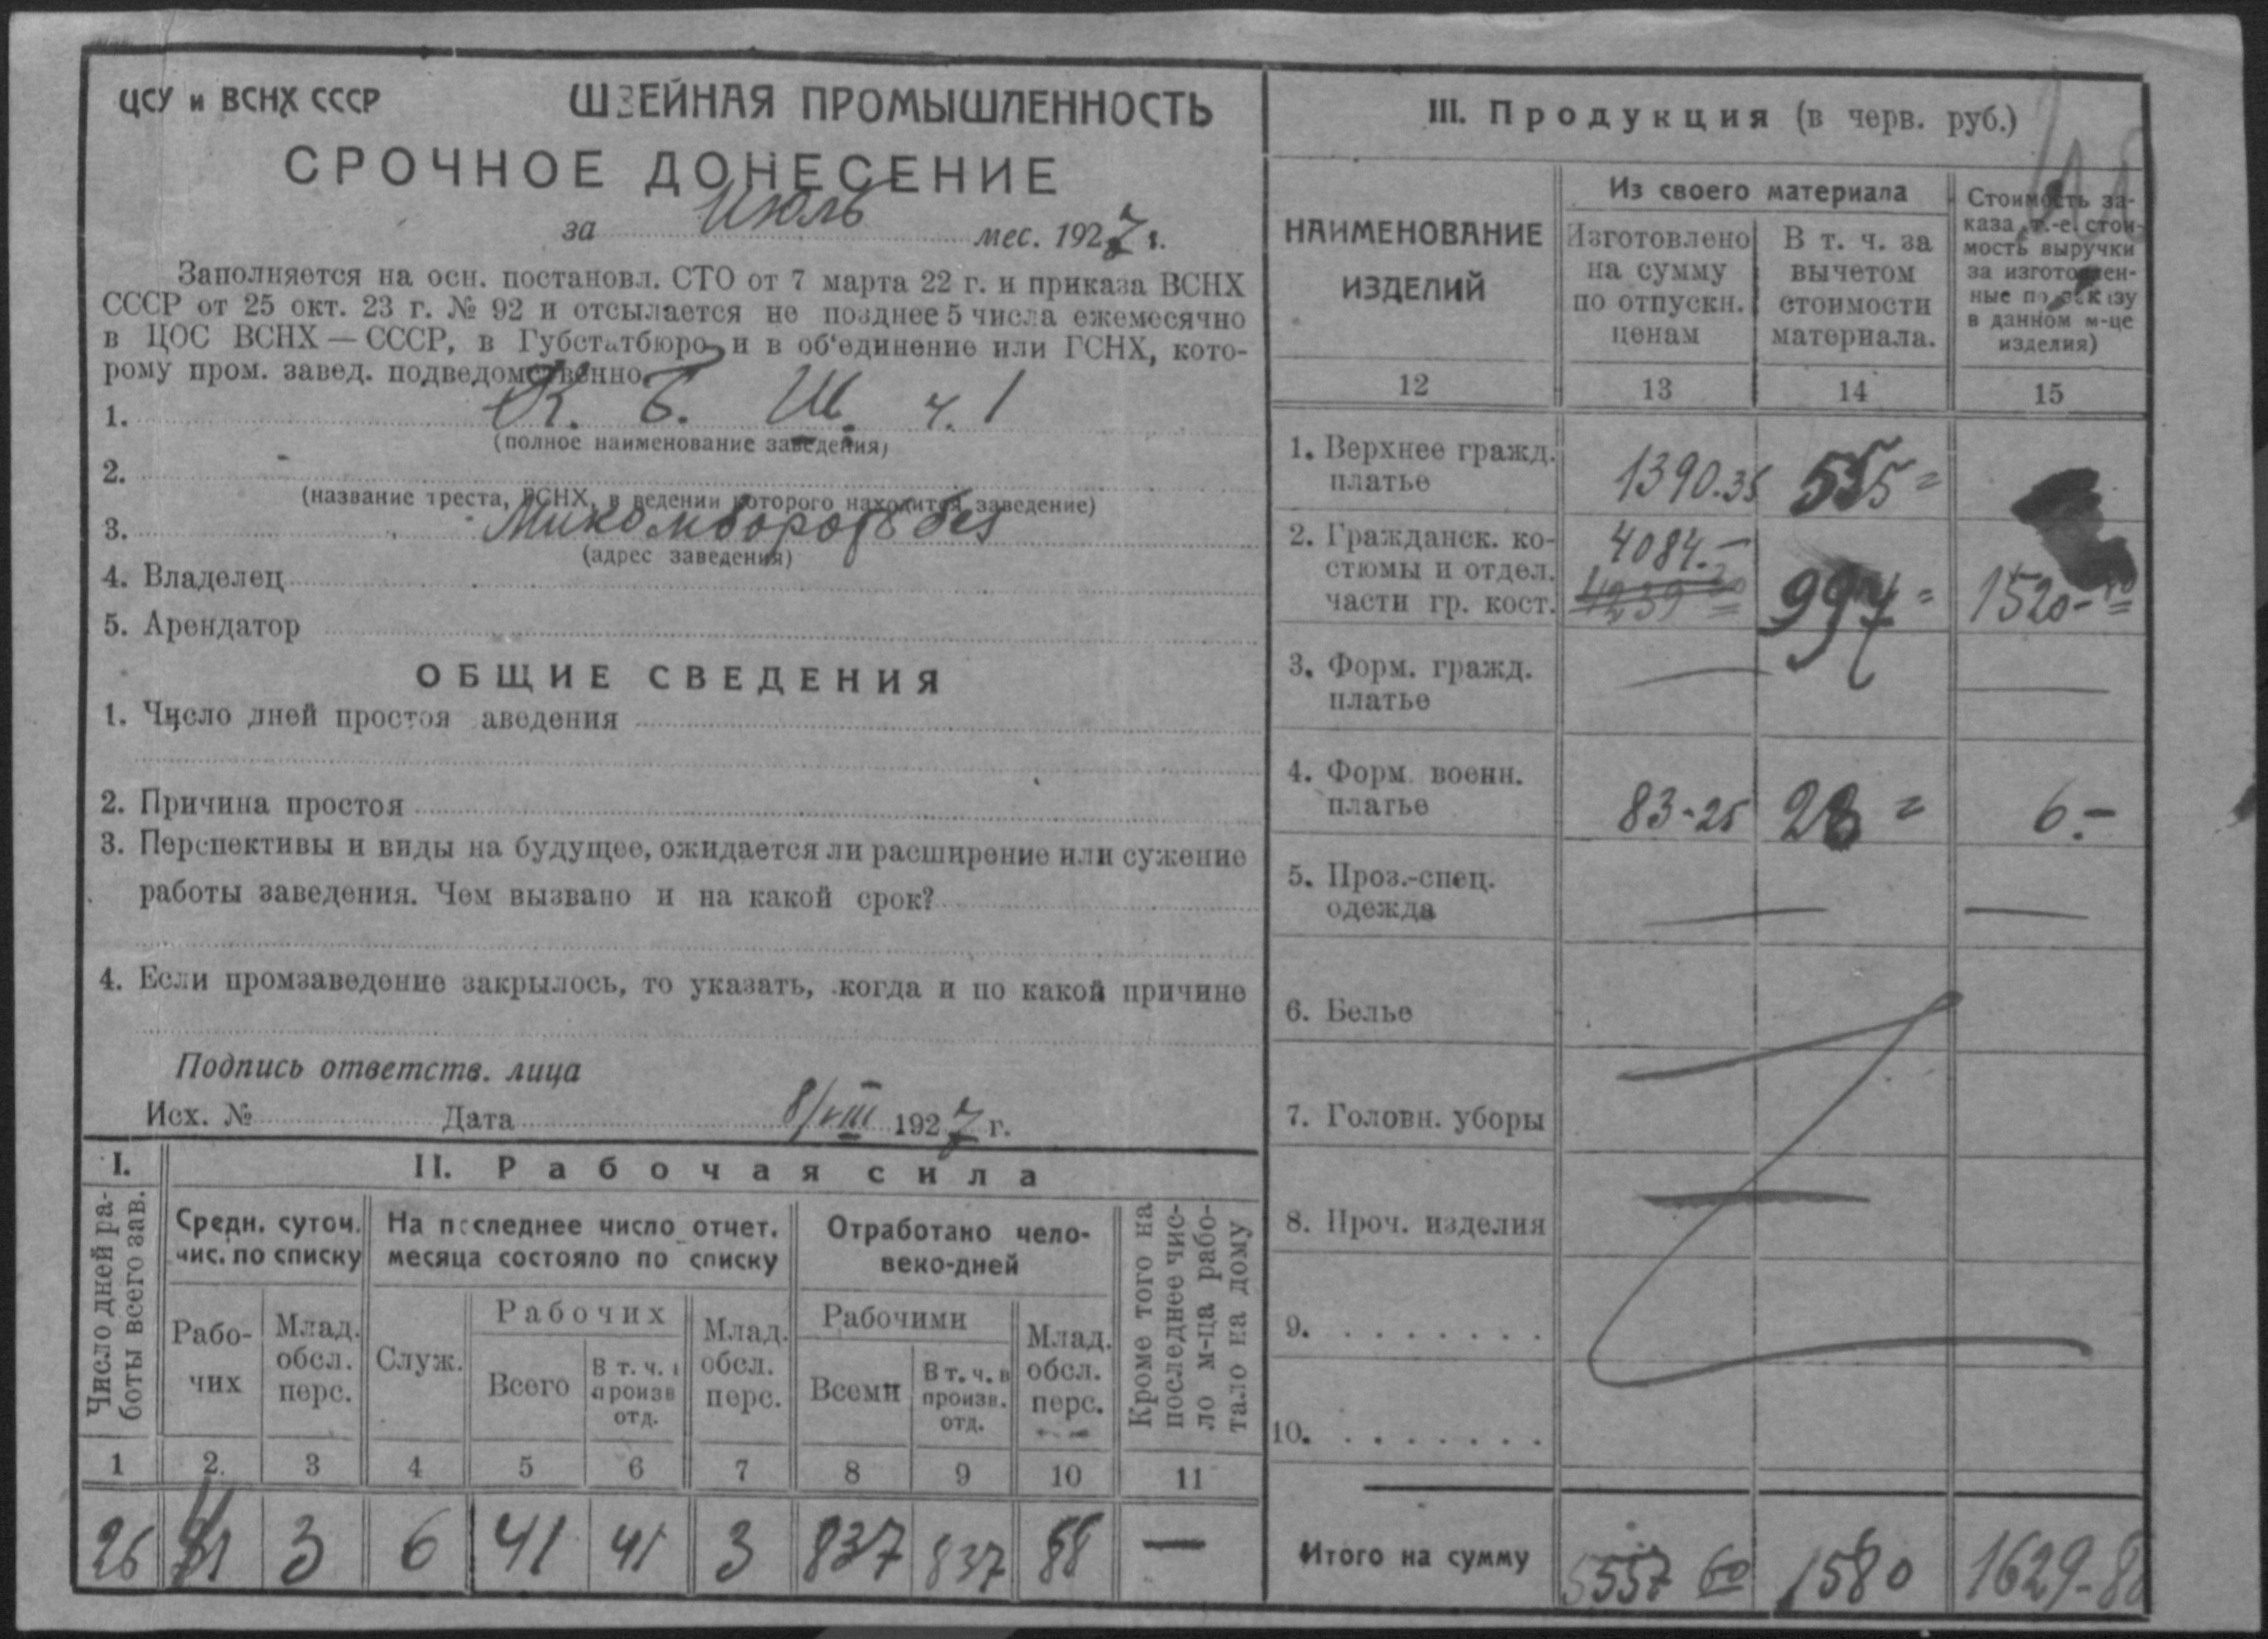 ЦСУ и ВСНХ СССР
ШВЕЙНАЯ ПРОМЫШЛЕННОСТЬ
СРОЧНОЕ ДОНЕСЕНИЕ
за Июль мес. 1927 г.
Заполняется на осн. постановл. СТО от 7 марта 22 г. и приказа ВСНХ
СССР от 25 окт. 23 г. № 92 и отсылается не позднее 5 числа ежемесячно
в ЦОС ВСНХ — СССР, в Губстатбюро и в об'единение или ГСНХ, кото-
рому пром. завед. подведомственно.
1. К. Б. Ш. ч. 1
(полное наименование заведения)
2.
(название треста, ГСНХ, в ведении которого находится заведение)
3.
(адрес заведения)
4. Владелец
5. Арендатор
ОБЩИЕ СВЕДЕНИЯ
1. Число дней простоя аведения
2. Причина простоя
3. Перспективы и виды на будущее, ожидается ли расширение или сужение
работы заведения. Чем вызвано и на какой срок?
4. Если промзаведение закрылось, то указать, когда и по какой причине
Подпись ответств. лица
Исх. № Дата 8/VIII 1927 г.
I.
Число дней ра-
боты всего зав.
II. Рабочая сила
Средн. суточ.
чис. по списку
На последнее число отчет.
месяца состояло по списку
Отработано чело-
веко-дней
Кроме того на
последнее чис-
ло м-ца рабо-
тало на дому
Рабо-
чих
Млад.
обсл.
перс.
Служ.
Рабочих
Всего
В т. ч. в
произв
отд.
Млад.
обсл.
перс.
Рабочими
Всеми
В т. ч. в
произв.
отд.
Млад.
обсл.
перс.
1 2. 3 4 5 6 7 8 9 10 11
26 41 3 6 41 41 3 837 837 88 —
III. Продукция (в черв. руб.)
НАИМЕНОВАНИЕ
ИЗДЕЛИЙ
Из своего материала
Изготовлено
на сумму
по отпускн.
ценам
В т. ч. за
вычетом
стоимости
материала.
Стоимость за-
каза т.-е. стои-
мость выручки
за изготовлен-
ные по заказу
в данном м-це
изделия)
12 13 14 15
1. Верхнее гражд.
платье
1390.35 555 =
2. Гражданск. ко-
стюмы и отдел.
части гр. кост.
4084.—
997 =
3. Форм. гражд.
платье
— —
4. Форм. военн.
платье
83-25 28 = 6.-
5. Проз.-спец.
одежда
— —
6. Белье
7. Головн. уборы
8. Проч. изделия
9. . . . . . . . .
10. . . . . . . . .
Итого на сумму 5557 60 1580 1629-88